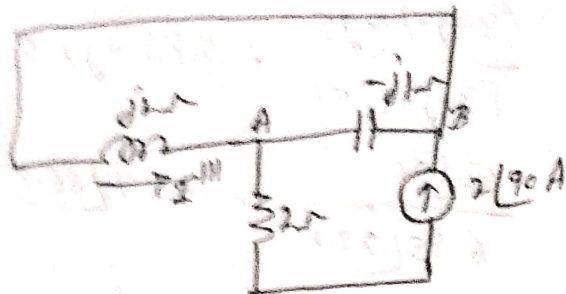 -j1Ω
j1Ω
A
B
I'''
2Ω
2∠90 A